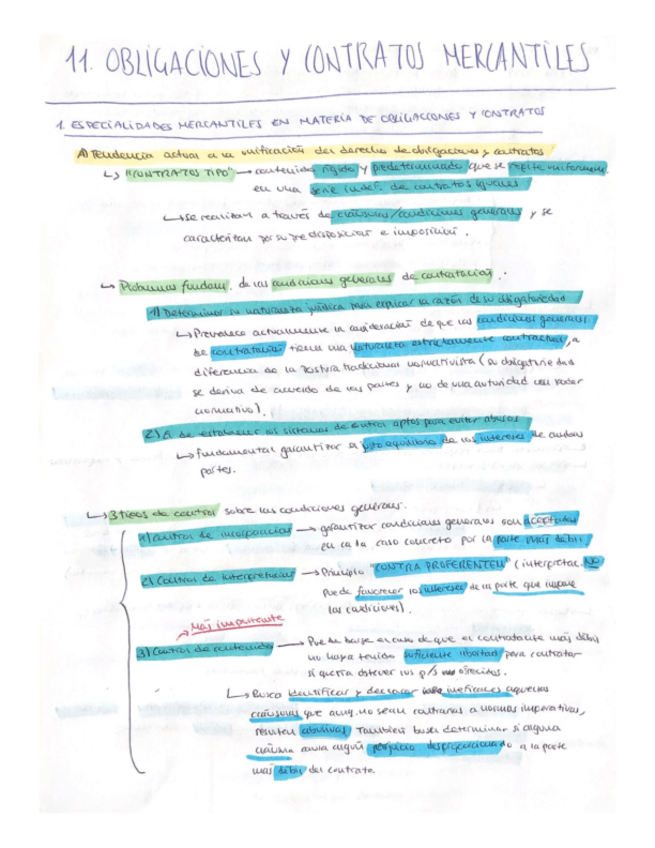 11. OBLIGACIONES Y CONTRATOS MERCANTILES
1. ESPECIALIDADES MERCANTILES EN MATERIA DE OBLIGACIONES Y CONTRATOS
A) Tendencia actual a la unificación del derecho de obligaciones y contratos
↳ "CONTRATOS TIPO" → contenido rígido y predeterminado que se repite uniformem.
en una serie indef. de contratos iguales
↳ se realizan a través de cláusulas/condiciones generales y se
caracterizan por su predisposición e imposición.
↳ Problemas fundam. de las condiciones generales de contratación:
1) Determinar su naturaleza jurídica para explicar la razón de su obligatoriedad
↳ Prevalece actualmente la consideración de que las condiciones generales
de contratación tienen una naturaleza estrictamente contractual, a
diferencia de la postura tradicional normativista (su obligatoriedad
se deriva de acuerdo de las partes y no de una autoridad con poder
normativo).
2) El de establecer los sistemas de control aptos para evitar abusos
↳ fundamental garantizar el justo equilibrio de los intereses de ambas
partes.
↳ 3 tipos de control sobre las condiciones generales.
1) Control de incorporación → garantizar condiciones generales son aceptadas
en cada caso concreto por la parte más débil.
2) Control de interpretación → Principio "CONTRA PROFERENTEM" (interpretac. NO
puede favorecer los intereses de la parte que impone
las condiciones).
→ Más importante
3) Control de contenido → Puede darse en caso de que el contratante más débil
no haya tenido suficiente libertad para contratar
si quería obtener los p/s ofrecidos.
↳ Busca identificar y declarar ineficaces aquellas
cláusulas que aunq. no sean contrarias a normas imperativas,
resultan abusivas. También busca determinar si alguna
cláusula causa algún perjuicio desproporcionado a la parte
más débil del contrato.